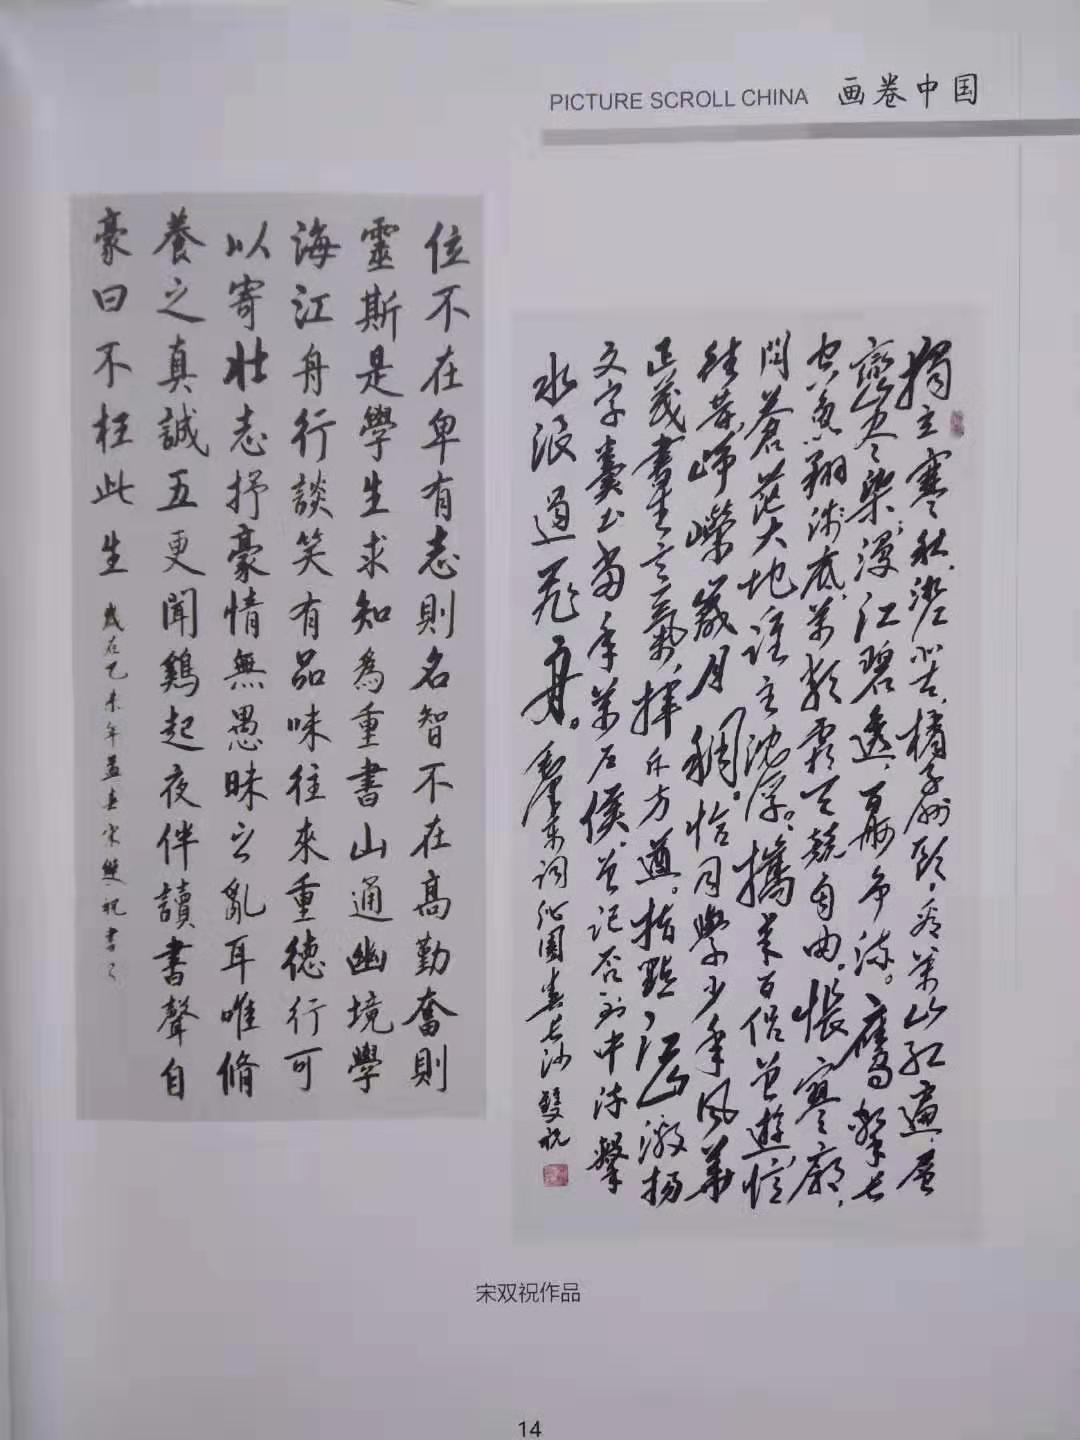 PICTURE SCROLL CHINA 画卷中国
位不在卑有志則名智不在高勤奮則
靈斯是學生求知為重書山通幽境學
海江舟行談笑有品味往來重德行可
以寄壯志抒豪情無愚昧之亂耳唯脩
養之真誠五更聞鷄起夜伴讀書聲自
豪曰不枉此生
歲在乙未年孟春宋雙祝書之
獨立寒秋,湘江北去,橘子洲頭,看萬山紅遍,層
巒尽染;漫江碧透,百舸争流。鷹擊长
空,魚翔浅底,萬類霜天競自由。悵寥廓,
問蒼茫大地誰主沈浮。攜来百侣曾遊,憶
往昔,崢嶸歲月稠。恰同學少年風華
正茂書生意氣,揮斥方遒。指點江山激揚
文字糞土當年萬户侯。曾記否到中流擊
水浪遏飛舟。
毛澤东詞沁園春长沙 雙祝
宋双祝作品
14